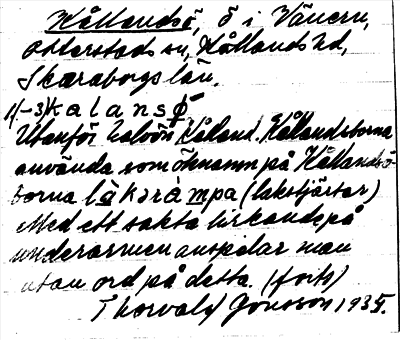 Kållandsö, ö i Vänern,
Otterstads sn, Kållands hd,
Skaraborgs län.
1/-3) kalansø
Utanför halvön Kålland. Kållandsborna
använda som öknamn på Kållandsö-
borna låkəràmpa (lakstjärtar)
Med ett sakta tirkande på
underarmen anspelar man
utan ord på detta. (forts)
Thorvald Jonsson 1935.